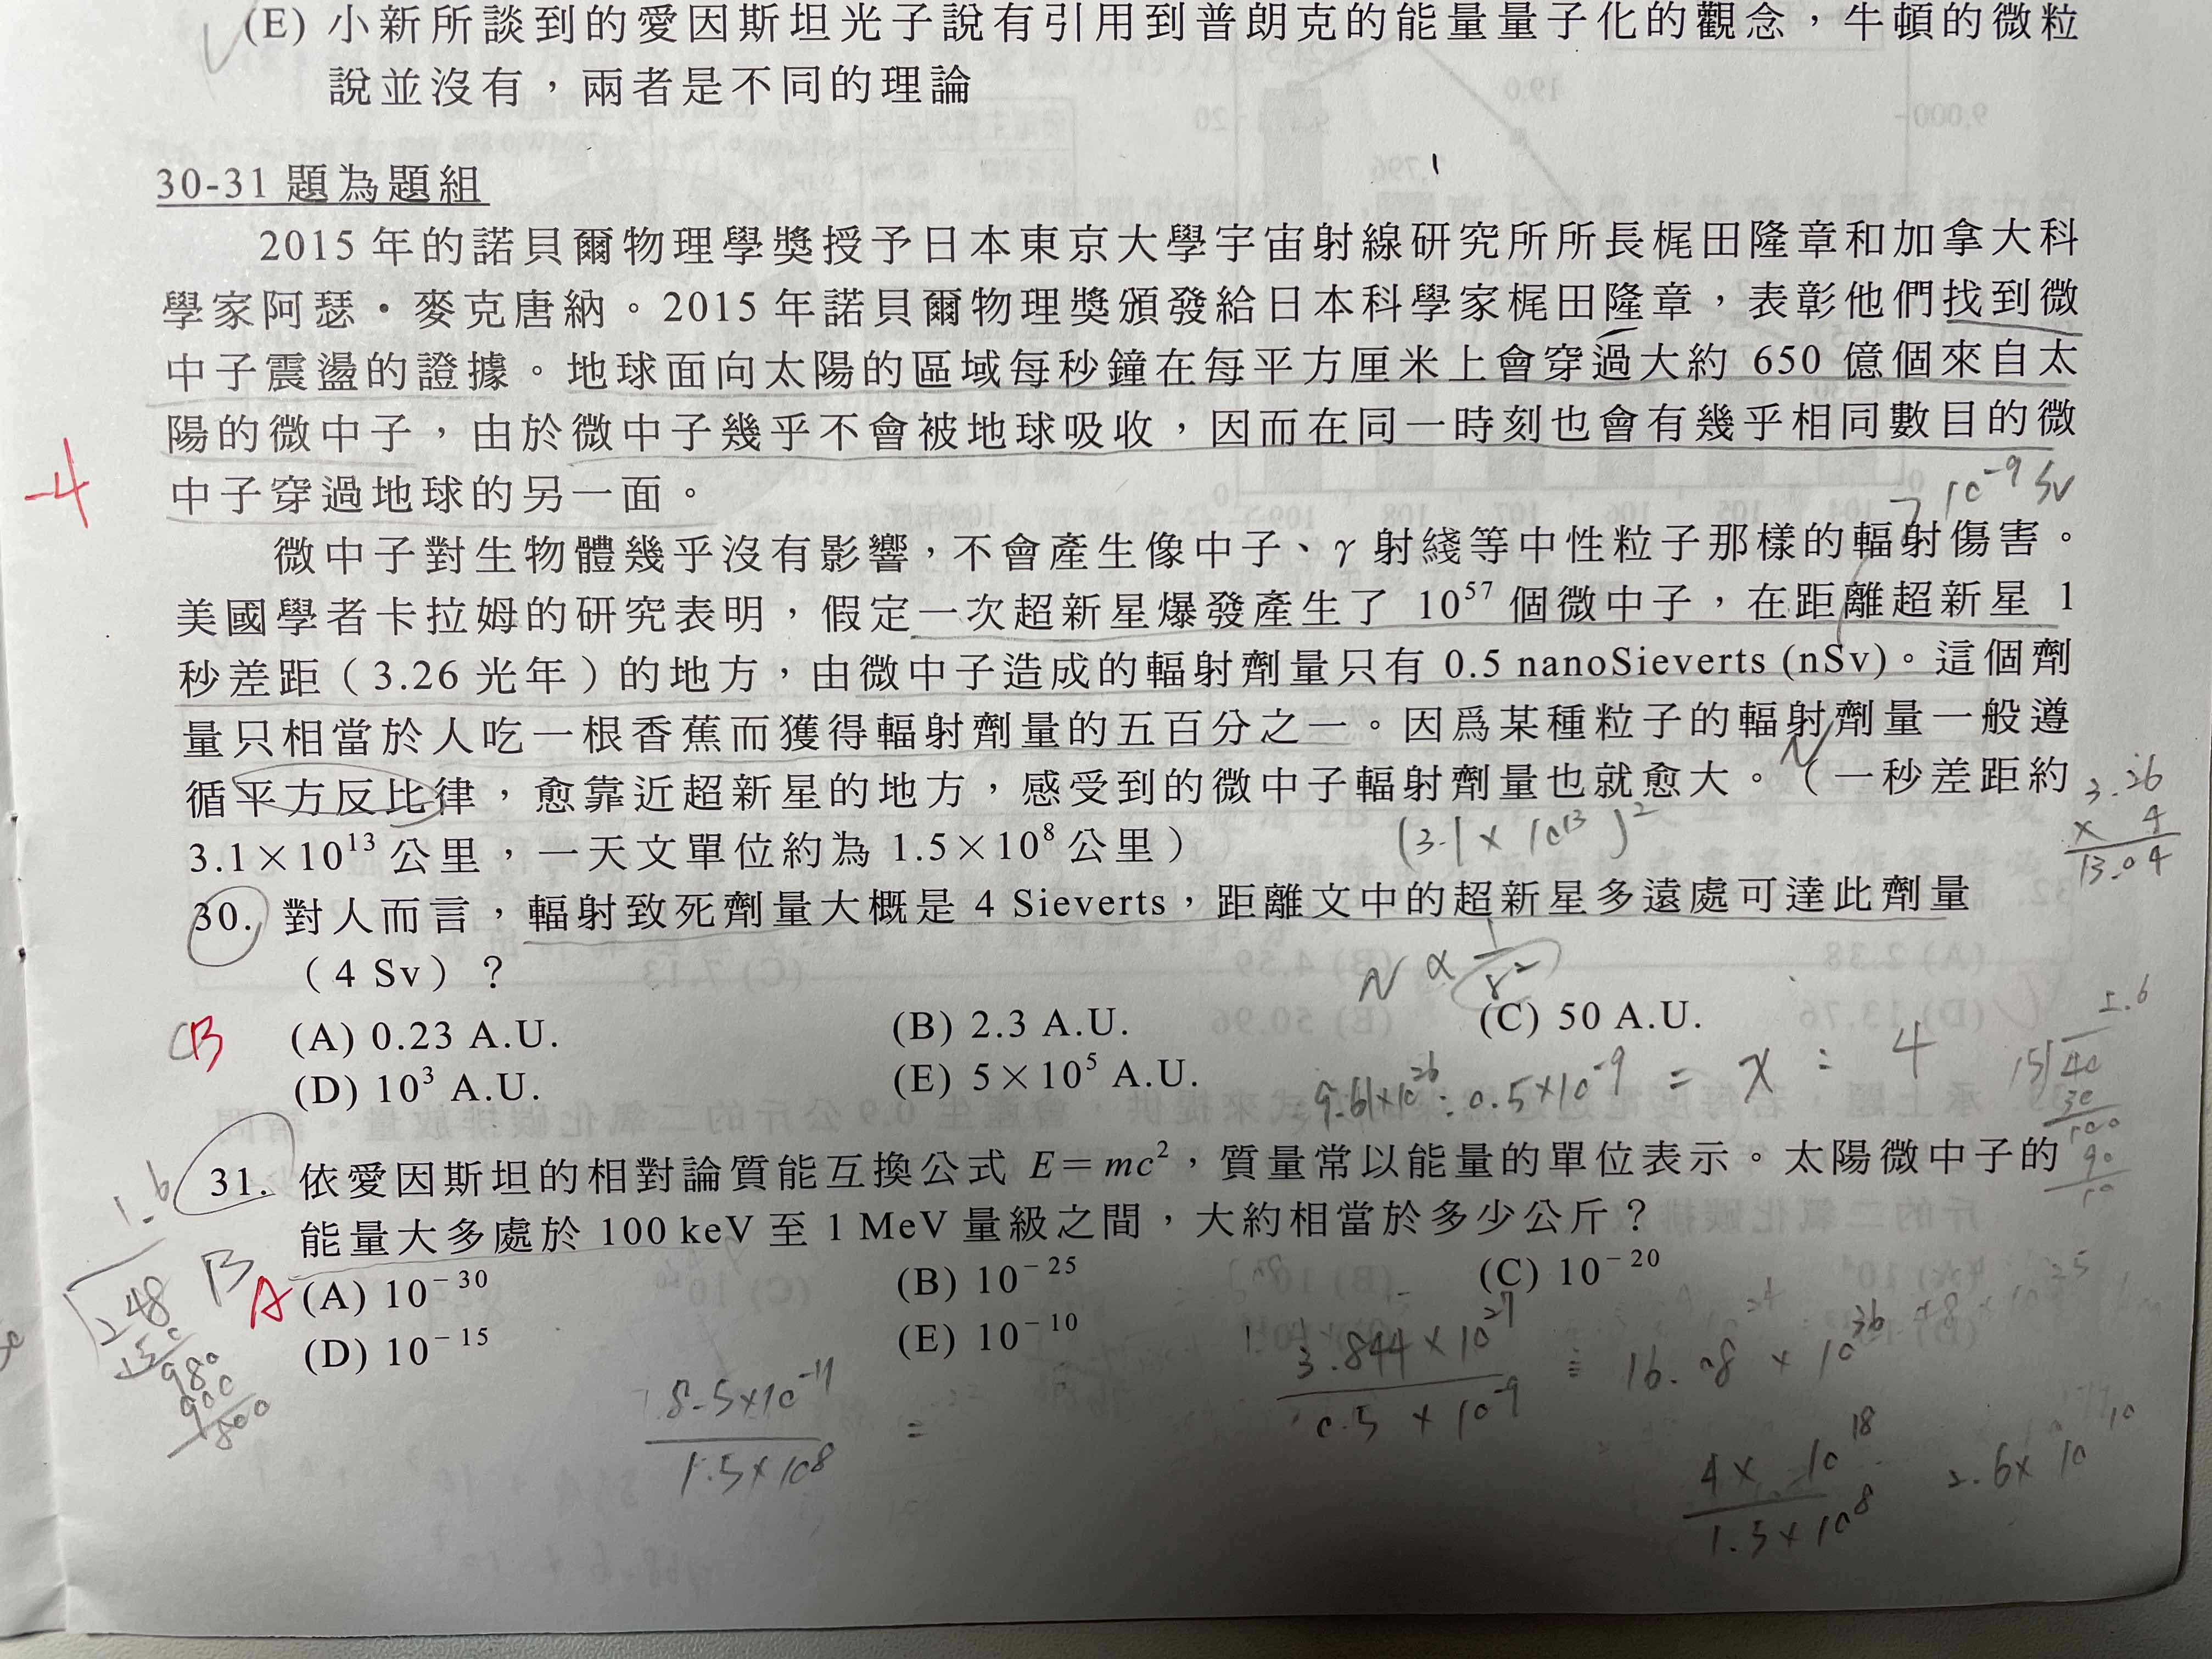 (E) 小新所談到的愛因斯坦光子說有引用到普朗克的能量量子化的觀念，牛頓的微粒
說並沒有，兩者是不同的理論
30-31 題為題組
2015 年的諾貝爾物理學獎授予日本東京大學宇宙射線研究所所長梶田隆章和加拿大科
學家阿瑟・麥克唐納。2015 年諾貝爾物理獎頒發給日本科學家梶田隆章，表彰他們找到微
中子震盪的證據。地球面向太陽的區域每秒鐘在每平方厘米上會穿過大約 650 億個來自太
陽的微中子，由於微中子幾乎不會被地球吸收，因而在同一時刻也會有幾乎相同數目的微
中子穿過地球的另一面。
-4
10⁻⁹ Sv
微中子對生物體幾乎沒有影響，不會產生像中子、γ 射綫等中性粒子那樣的輻射傷害。
美國學者卡拉姆的研究表明，假定一次超新星爆發產生了 10⁵⁷ 個微中子，在距離超新星 1
秒差距（3.26 光年）的地方，由微中子造成的輻射劑量只有 0.5 nanoSieverts (nSv)。這個劑
量只相當於人吃一根香蕉而獲得輻射劑量的五百分之一。因爲某種粒子的輻射劑量一般遵
循平方反比律，愈靠近超新星的地方，感受到的微中子輻射劑量也就愈大。（一秒差距約
3.1×10¹³ 公里，一天文單位約為 1.5×10⁸ 公里）
N
(3.1 × 10¹³)²
3.26
× 4
13.04
30. 對人而言，輻射致死劑量大概是 4 Sieverts，距離文中的超新星多遠處可達此劑量
（4 Sv）？
N ∝ 1/r²
C B
(A) 0.23 A.U. (B) 2.3 A.U. (C) 50 A.U.
(D) 10³ A.U. (E) 5×10⁵ A.U.
9.61×10²⁶ : 0.5×10⁻⁹ = x : 4
31. 依愛因斯坦的相對論質能互換公式 E＝mc²，質量常以能量的單位表示。太陽微中子的
能量大多處於 100 keV 至 1 MeV 量級之間，大約相當於多少公斤？
B A
(A) 10⁻³⁰ (B) 10⁻²⁵ (C) 10⁻²⁰
(D) 10⁻¹⁵ (E) 10⁻¹⁰
1.6
3.844 × 10²⁷
0.5 × 10⁻⁹
8.5×10⁻¹¹
1.5×10⁸
4 × 10¹⁸
1.5×10⁸
2.6× 10¹⁰